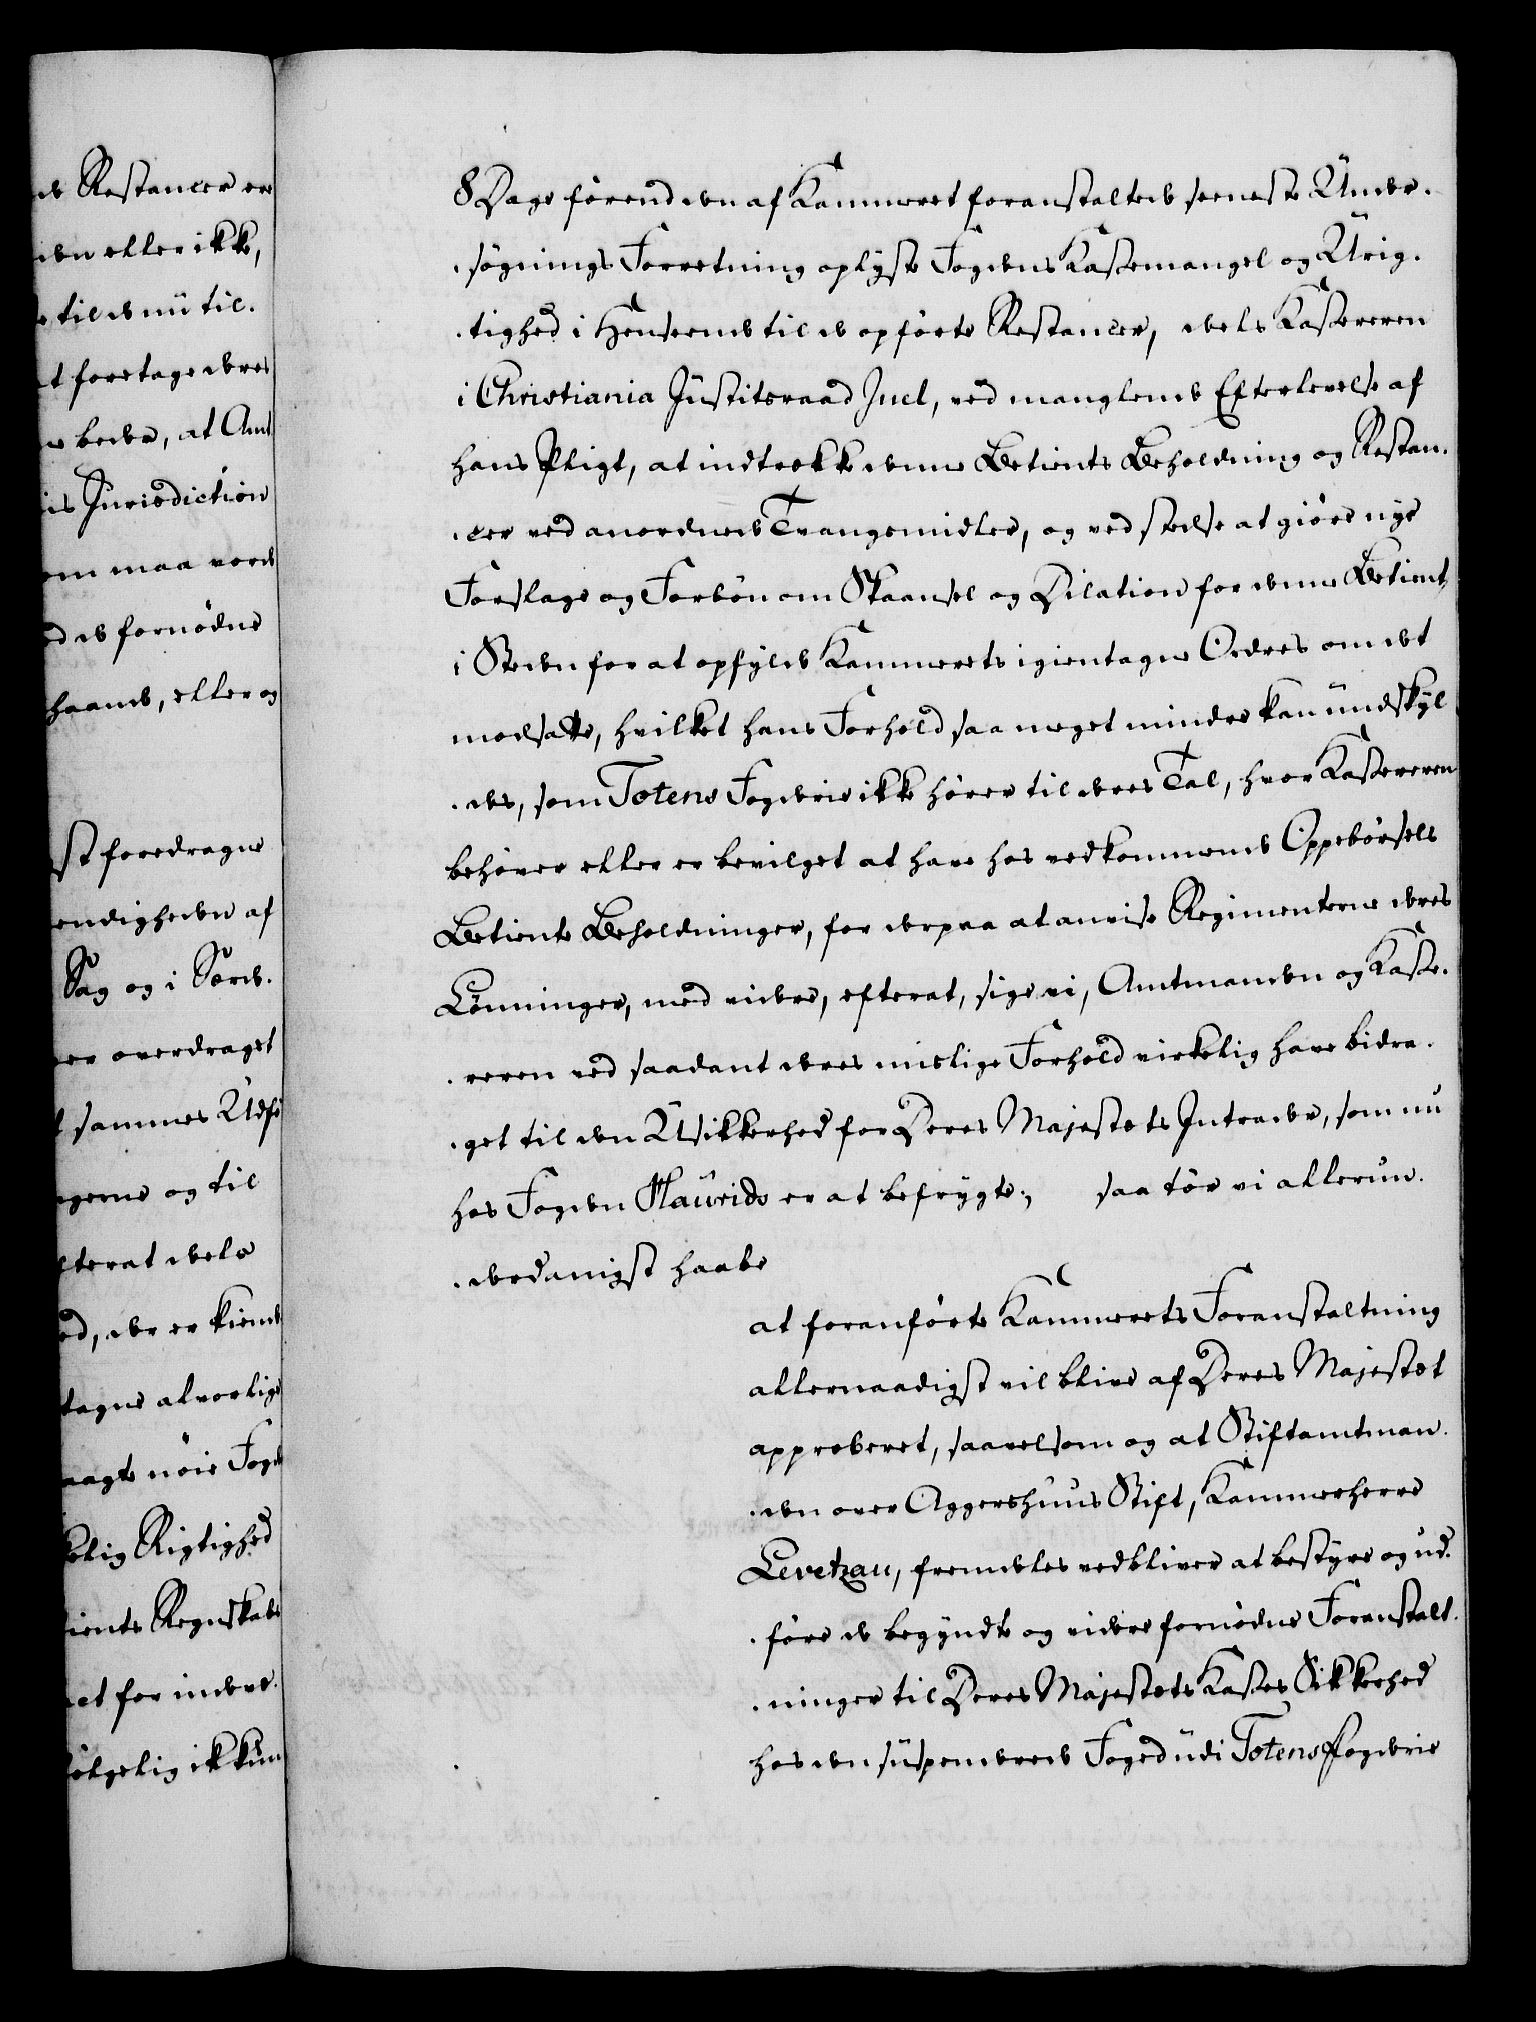 de Restancer ere
den eller ikke,
til de nu til.
t foretage deres
bede, at Amt
is Jurisdiction
om maa vorde
d de fornødne
haande, eller og
st foredragne
endigheden af
Sag og i Særde.
er overdraget
t sammes Udfø
gerne og til
fterat dels
ed, der er kiendt
tagne alvorlige
aagte nøie Foge
kelig Rigtighed
tients Regnskabs
et for indeve.
følgelig ikkun
8 Dage førend den af Kammeret foranstaltede seeneste Under.
.søgnings Forretning oplyste Fogdens Kassemangel og Urig.
.tighed i Henseende til de opførte Restancer, dels Kassereren
i Christiania Justitsraad Juel, ved manglende Efterlevelse af
hans Pligt, at indtrække denne Betients Beholdning og Restan.
.cer ved anordnede Tvangsmidler, og ved stedse at giøre nye
Forslage og Forbøn om Skaansel og Dilation for denne Betient,
i Steden for at opfylde Kammerets igientagne Ordres om det
modsatte, hvilket hans Forhold saa meget mindre kan undskyl
.des, som Totens Fogderie ikke hører til deres Tal, hvor Kassereren
behøver eller er bevilget at have hos vedkommende Oppebørsels
Betiente Beholdninger, for derpaa at anvise Regimenterne deres
Lønninger, med videre, efterat, sige vi, Amtmanden og Kasse.
.reren ved saadant deres mislige Forhold virkelig have bidra.
.get til den Usikkerhed for Deres Majestets Intrader, som nu
hos Fogden Haurids er at befrygte; saa tør vi allerun.
.derdanigst haabe
at foranførte Kammerets Foranstaltning
allernaadigst vil blive af Deres Majestet
approberet, saavelsom og at Stiftamtman.
.den over Aggershuus Stift, Kammerherre
Levetzau, fremdeles vedbliver at bestyre og ud.
.føre de begyndte og videre fornødne Foranstalt.
.ninger til Deres Majestets Kasses Sikkerhed
hos den suspenderede Foged udi Totens Fogderie